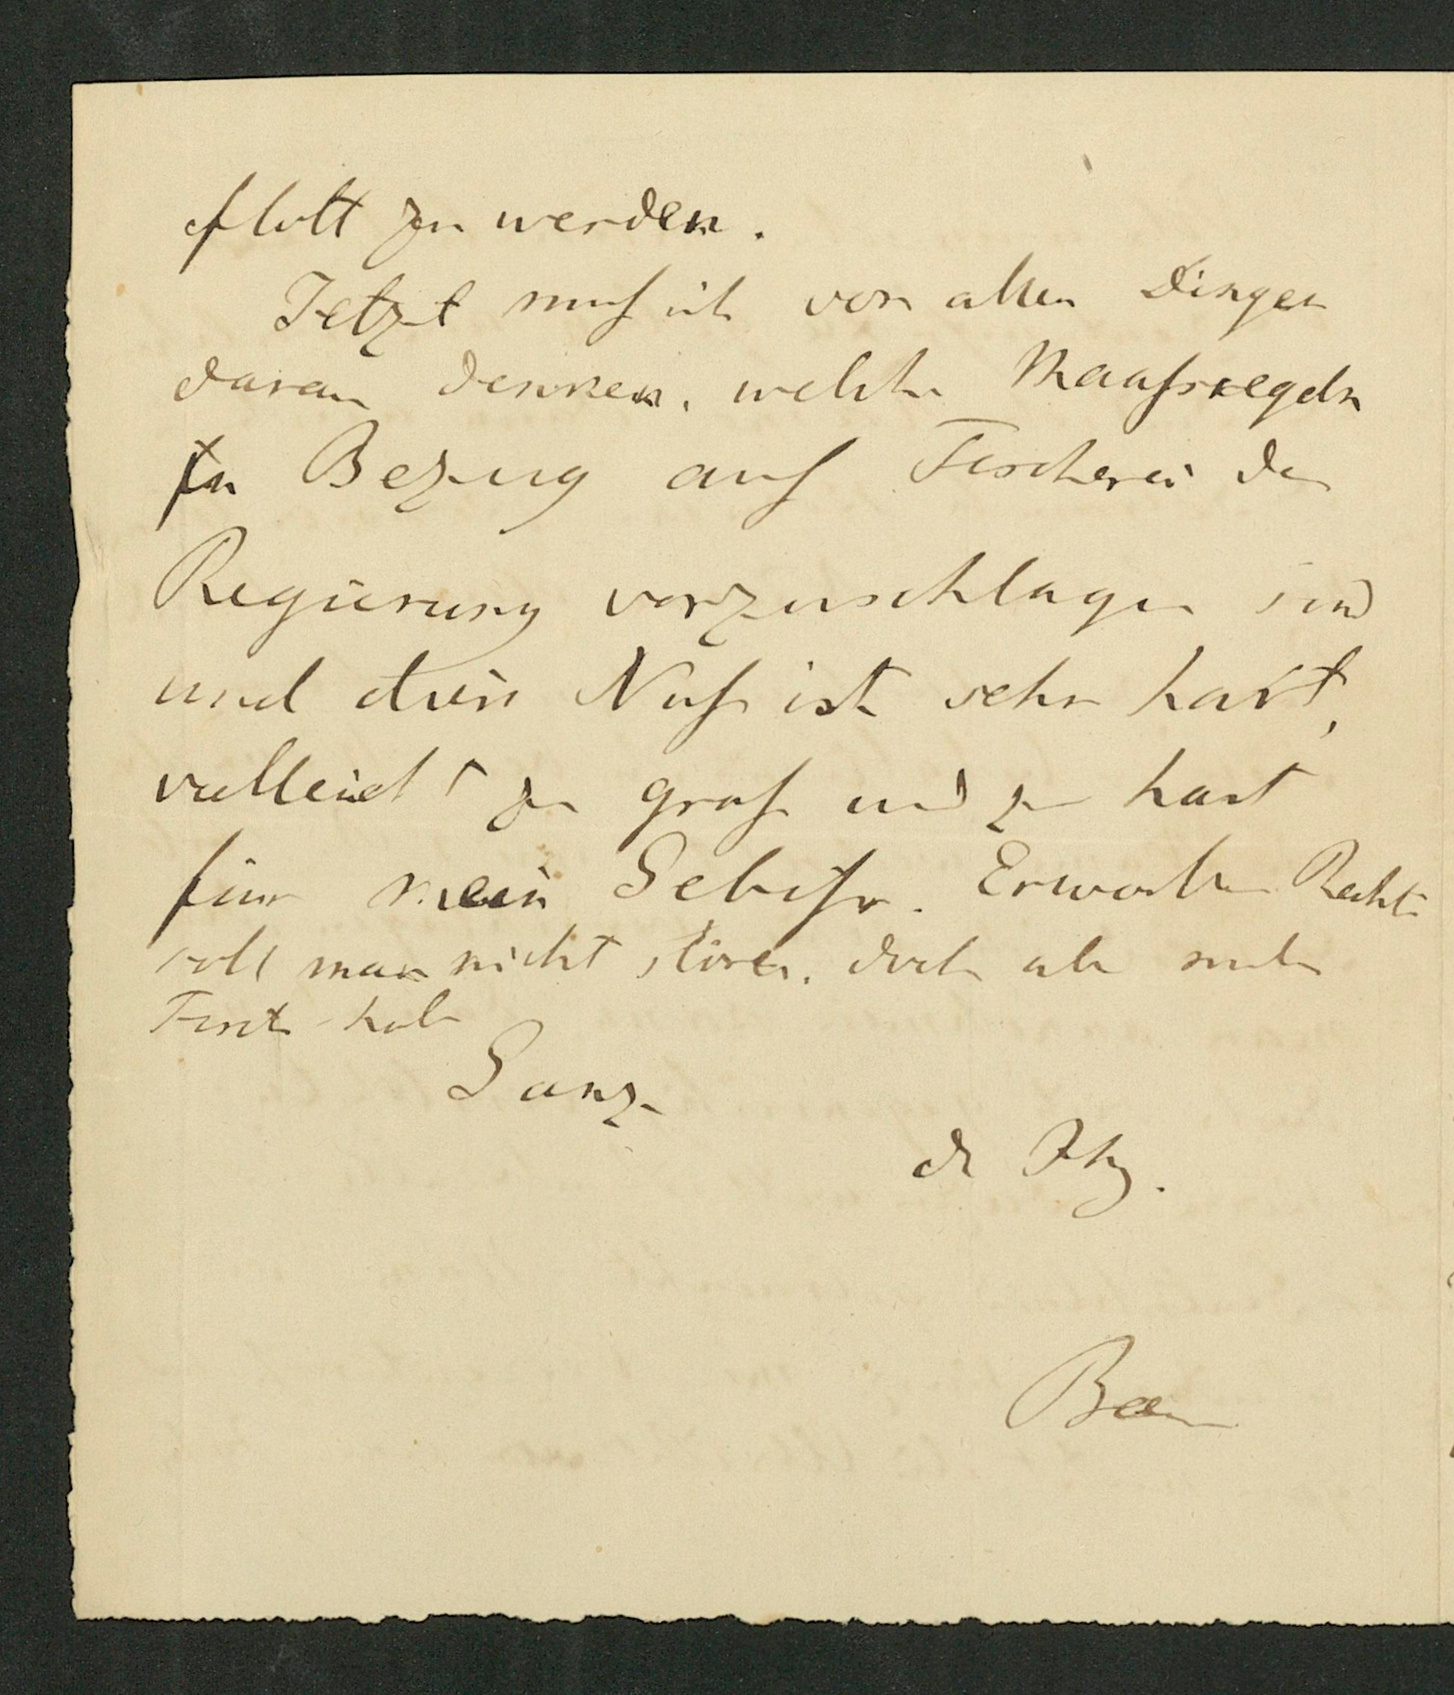 flott zu werden.
Jetzt muß ich vor allen Dingen
daran denken, welche Maaßregeln
in Bezug auf Fischerei der
Regierung vorzuschlagen sind
und diese Nuß ist sehr hart,
vielleicht zu groß und zu hart
für mein Gebiß. Erworbene Rechte
soll man nicht stören, doch aber mehr
Fische haben
Ganz
der Ihrige.
Baer